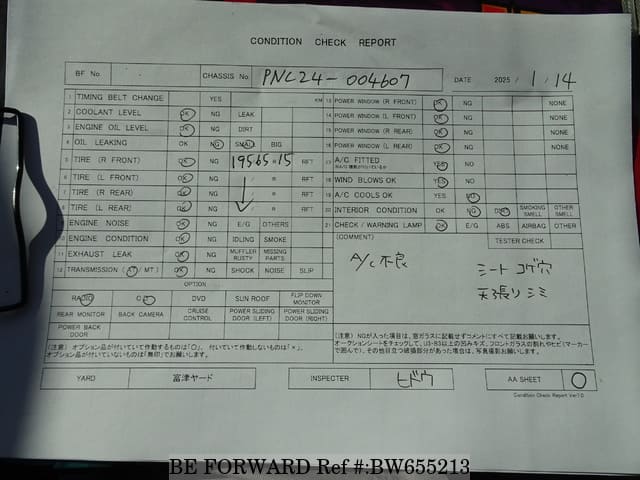 CONDITION CHECK REPORT
BF No CHASSIS No PNC24-004607 DATE 2025 / 1 / 14
1 TIMING BELT CHANGE YES KM
2 COOLANT LEVEL OK NG LEAK
3 ENGINE OIL LEVEL OK NG DIRT
4 OIL LEAKING OK NG SMALL BIG
5 TIRE (R FRONT) OK NG 195 65 R 15 RFT
6 TIRE (L FRONT) OK NG / R RFT
7 TIRE (R REAR) OK NG / R RFT
8 TIRE (L REAR) OK NG / R RFT
9 ENGINE NOISE OK NG E/G OTHERS
10 ENGINE CONDITION OK NG IDLING SMOKE
11 EXHAUST LEAK OK NG MUFFLER RUSTY MISSING PARTS
12 TRANSMISSION (AT/ MT) OK NG SHOCK NOISE SLIP
13 POWER WINDOW (R FRONT) OK NG NONE
14 POWER WINDOW (L FRONT) OK NG NONE
15 POWER WINDOW (R REAR) OK NG NONE
16 POWER WINDOW (L REAR) OK NG NONE
17 A/C FITTED YES NG
18 WIND BLOWS OK YES NG
19 A/C COOLS OK YES NG
20 INTERIOR CONDITION OK NG SMOKING SMELL OTHER SMELL
21 CHECK/WARNING LAMP OK E/G ABS AIRBAG OTHER
(COMMENT) TESTER CHECK
A/C 不良
シート コゲ穴
天張リ シミ
OPTION
RADIO CD DVD SUN ROOF FLIP DOWN MONITOR
REAR MONITOR BACK CAMERA CRUISE CONTROL POWER SLIDING DOOR (LEFT) POWER SLIDING DOOR (RIGHT)
POWER BACK DOOR
(注意) オプション品が付いていて作動するものは「○」、付いていて作動しないものは「×」、
オプション品が付いていないものは「無印」でお願いします。
(注意) NGが入った項目は、窓ガラスに記載せずコメントにすべて記載お願いします。
オークションシートをチェックして、U3・B3以上の凹みキズ、フロントガラスの割れやヒビ(マーカーで囲んで)、その他目立つ破損部分があった場合は、写真撮影お願いします。
YARD 富津ヤード INSPECTER ヒドウ AA SHEET ○
Condition Check Report Ver1.0
BE FORWARD Ref #:BW655213